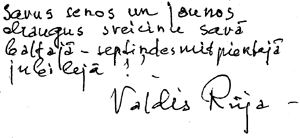 Savus senos un jaunos
draugus sveicinu savā
baltajā - septiņdesmitpiektajā
jubilejā !
Valdis Rūja -